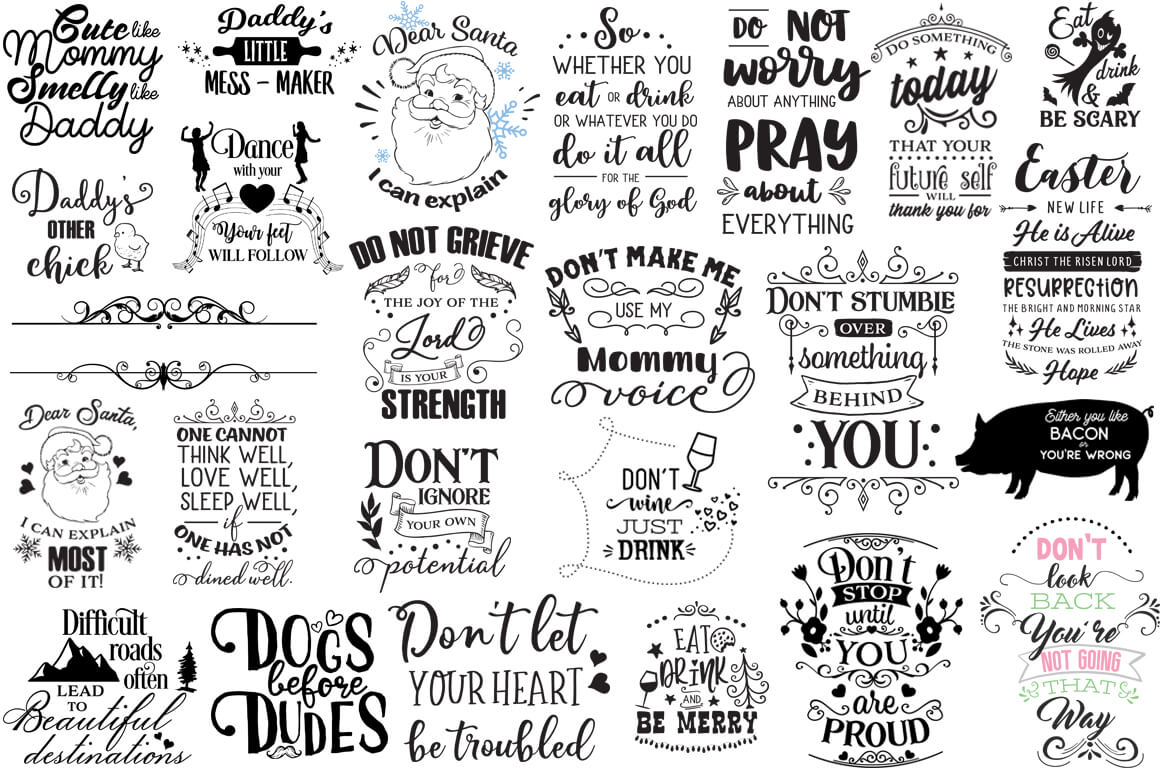 Cute like
Mommy
Smelly like
Daddy
Daddy's
LITTLE
MESS - MAKER
Dear Santa
I can explain
So
WHETHER YOU
eat OR drink
OR WHATEVER YOU DO
do it all
FOR THE
glory of God
DO NOT
worry
ABOUT ANYTHING
PRAY
about
EVERYTHING
DO SOMETHING
today
THAT YOUR
future self
WILL
thank you for
Eat
drink
&
BE SCARY
Daddy's
OTHER
chick
Dance
with your
Your feet
WILL FOLLOW
DO NOT GRIEVE
for
THE JOY OF THE
Lord
IS YOUR
STRENGTH
DON'T MAKE ME
USE MY
Mommy
voice
DON'T STUMBLE
OVER
something
BEHIND
YOU
Easter
NEW LIFE
He is Alive
CHRIST THE RISEN LORD
RESURRECTION
THE BRIGHT AND MORNING STAR
He Lives
THE STONE WAS ROLLED AWAY
Hope
Dear Santa,
I CAN EXPLAIN
MOST
OF IT!
ONE CANNOT
THINK WELL,
LOVE WELL,
SLEEP WELL,
if
ONE HAS NOT
dined well.
DON'T
IGNORE
YOUR OWN
potential
DON'T
wine
JUST
DRINK
Either you like
BACON
or
YOU'RE WRONG
Difficult
roads
often
LEAD
TO
Beautiful
destinations
DOGS
before
DUDES
Don't let
YOUR HEART
be troubled
EAT
DRINK
AND
BE MERRY
Don't
STOP
until
YOU
are
PROUD
DON'T
look
BACK
You're
NOT GOING
THAT
Way